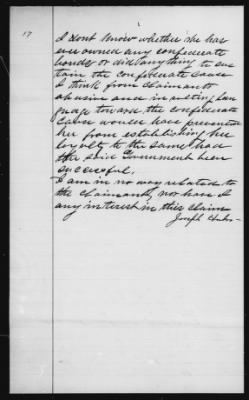 17
I dont know whether she has
ever owned any confederate
bonds or did anything to sus
tain the confederate cause
I think from claimants
abusive and insulting lan
guage toward the confederate
cause would have prevented
her from establishing her
loyalty to the same had
the said Government been
successful.
I am in no way related to
the claimant, nor have I
any interest in this claim
Joseph